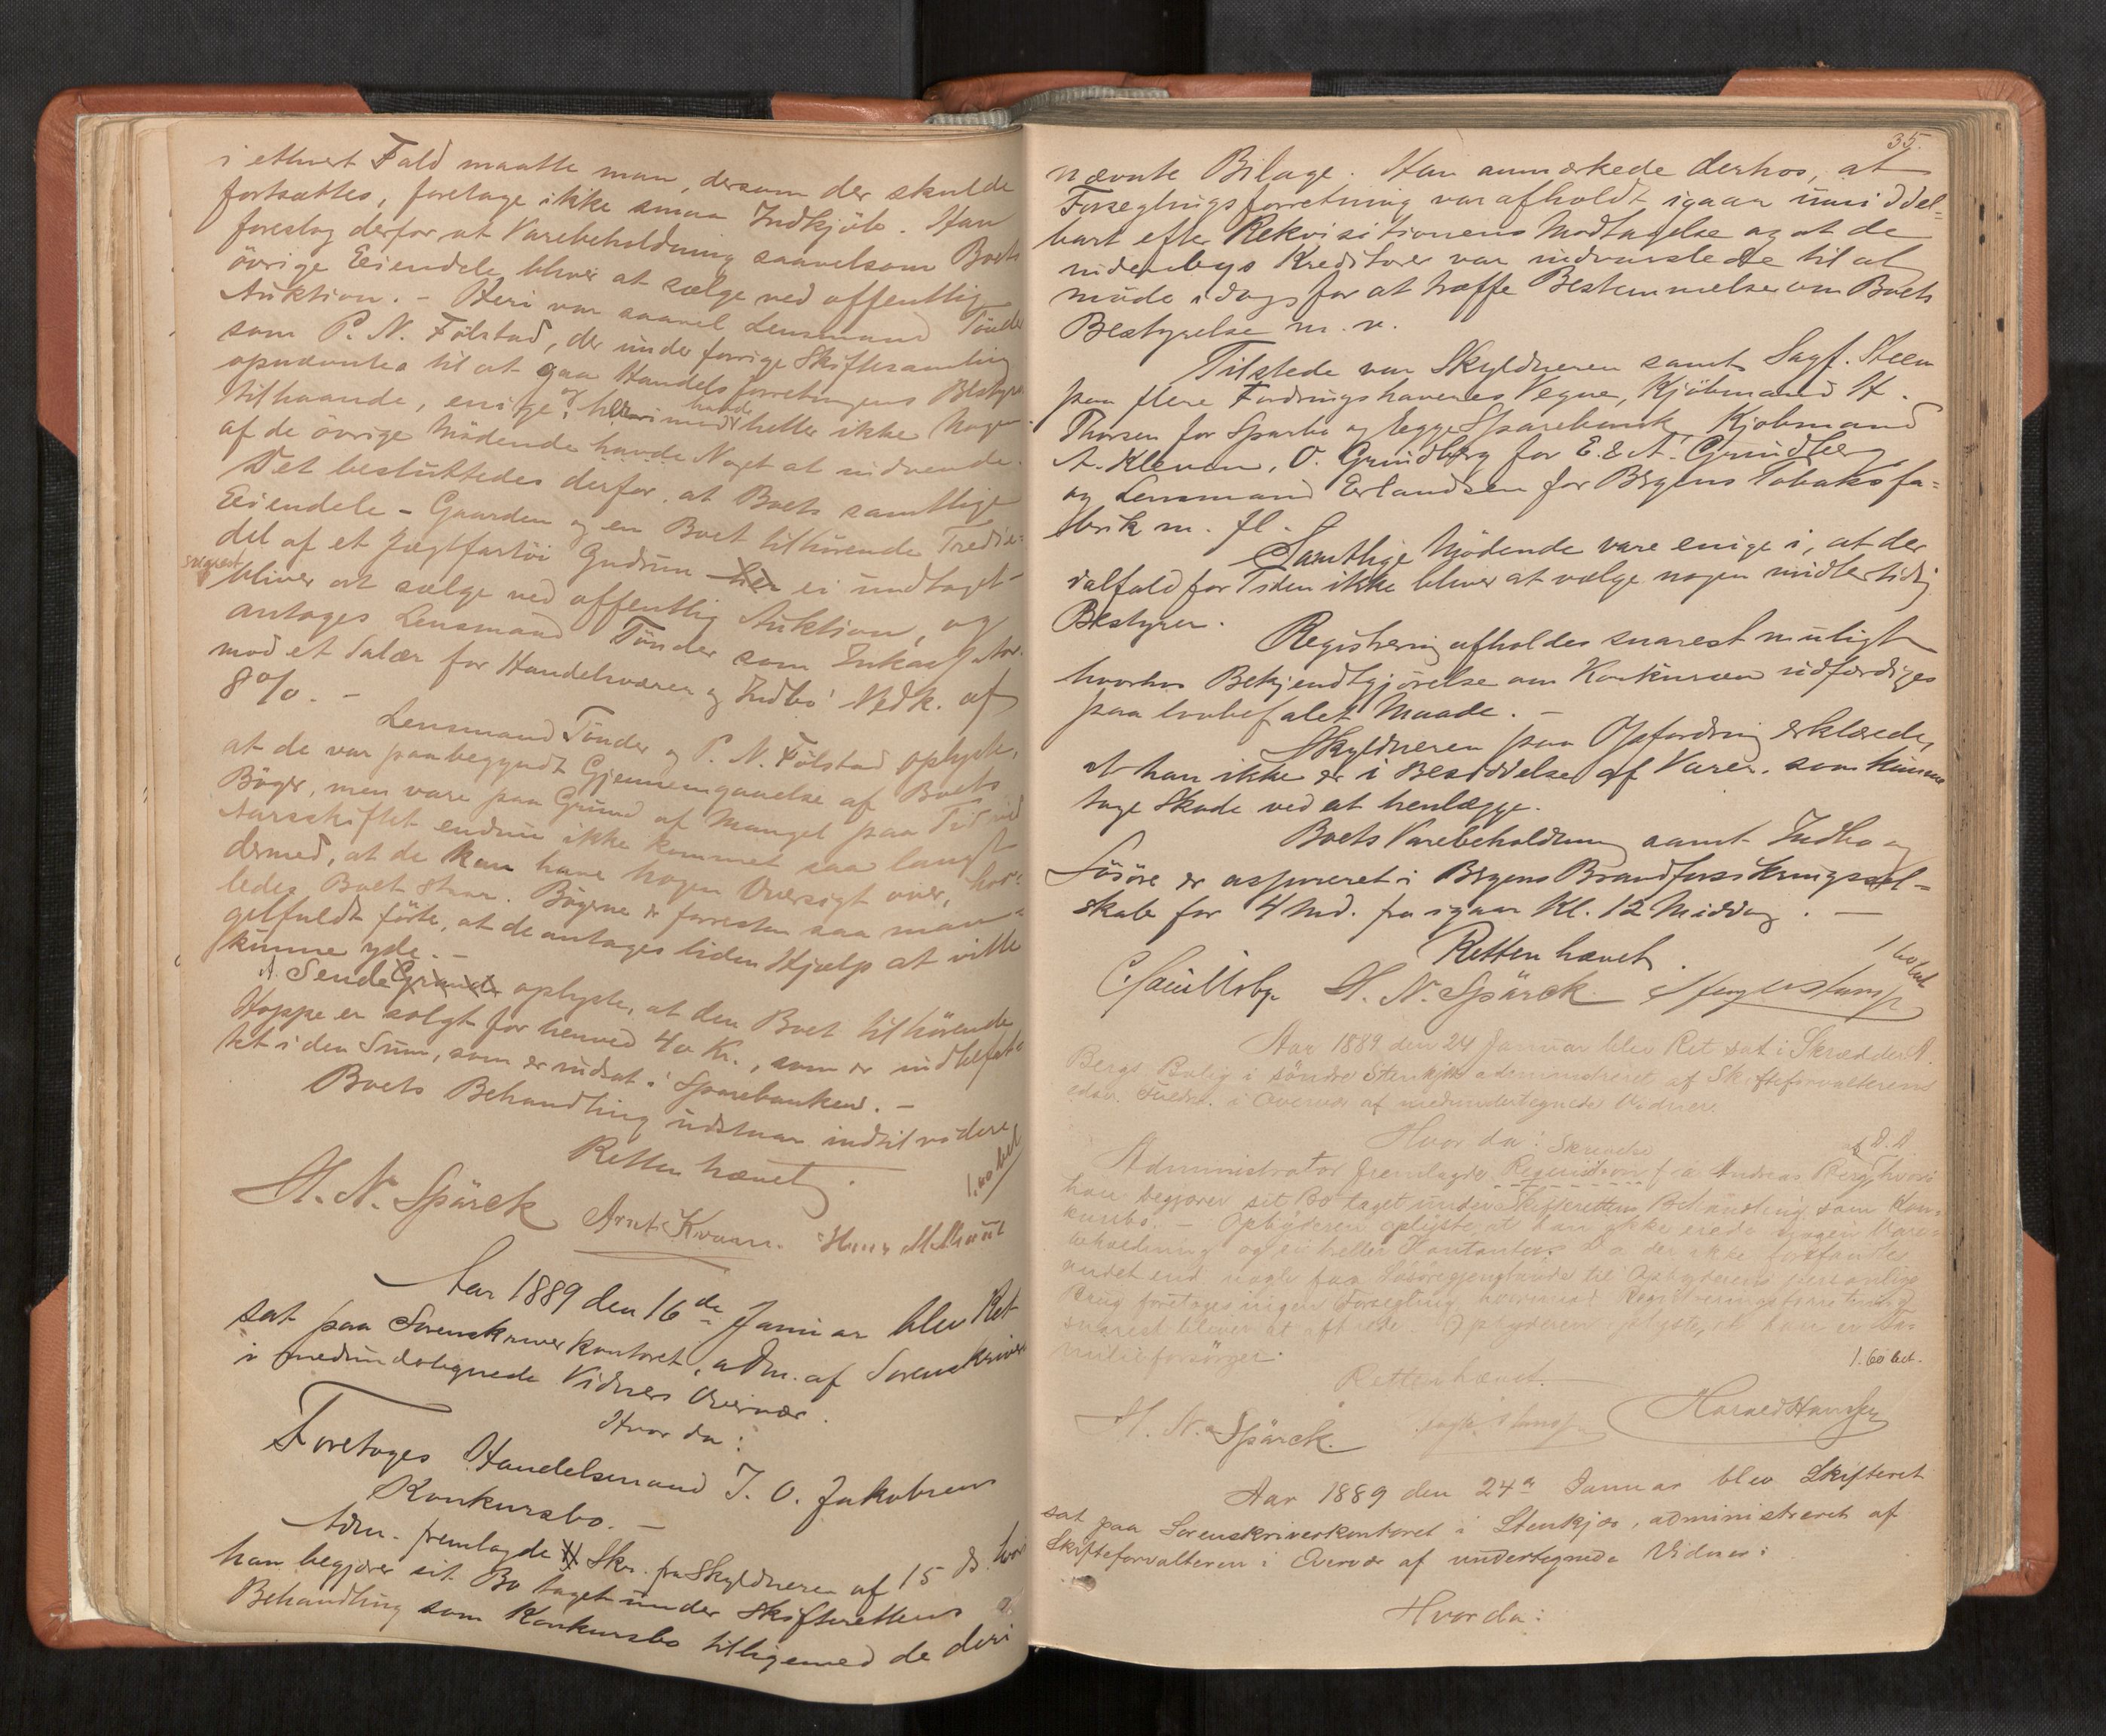 i ethvert Fald maatte man, dersom der skulde
fortsættes, foretage ikke smaa Indkjöb. Han
foreslog derfor at Varebeholdning saavelsom Boets
övrige Eiendele bliver at sælge ved offentlig
Auktion. - Heri var saavel Lensmand Tönder
som P. N. Fölstad, der under forrige Skiftesamling
opnævntes til at gaa Handelsforretningens Bestyrer
tilhaande, enige, og herimod havde heller ikke Nogen
af de övrige Mödende havde Noget at indvende.
Det besluttedes derfor, at Boets samtlige
Eiendele - Gaarden og en Boet tilhörende Tredie-
del af et Jægtfartöi Gudrun ei undtaget -
snarest
bliver at sælge ved offentlig Auktion, og
antages Lensmand Tönder som Inkassator
mod et Salær for Handelsvarer og Indbo's Vedk. af
8%. -
Lensmand Tönder og P. N. Fölstad oplyste,
at de var paabegyndt Gjennemgaaelse af Boets
Böger, men vare paa Grund af Mangel paa Tid ved
Aarsskiftet endnu ikke kommet saa langt
dermed, at de kan have nogen Oversigt over, hvor-
ledes Boet staar. Bögerne er forresten saa man-
gelfuldt förte, at de antages liden Hjælp at ville
kunne yde. -
A. Sende oplyste, at den Boet tilhörende
Hoppe er solgt for henved 40 Kr., som er indbefat-
tet i den Sum, som er indsat i Sparebanken. -
Boets Behandling udstaar indtil videre
Retten hævet.
1.00 bet
H. N. Spärck Arnt Kvaan. Hans M. Muus
Aar 1889 den 16de Januar blev Ret
sat paa Sorenskriverkontoret, adm. af Sorenskriver
i medundertegnede Vidners Overvær.
Hvor da:
Foretoges Handelsmand J. O. Jakobsens
Konkursbo. -
Adm. fremlagde Skr. fra Skyldneren af 15 ds. hvori
han begjærer sit Bo taget under Skifterettens
Behandling som Konkursbo tilligemed de deri
35.
nævnte Bilage. Han anmærkede derhos, at
Forseglingsforretning var afholdt igaar umiddel-
bart efter Rekvisitionens Modtagelse og at de
indenbys Kreditorer var indvarslede til at
möde idag for at træffe Bestemmelse om Boets
Bestyrelse m. v.
Tilstede var Skyldneren samt Sagf. Steen
paa flere Fordringshaveres Vegne, Kjöbmand H.
Thorsen for Sparbo og Egge Sparebank, Kjöbmand
A. Kleven, O. Grundberg for E. & A. Grundberg
og Lensmand Erlandsen for Bergens Tobaksfa-
brik m. fl.
Samtlige Mödende vare enige i, at der
ialfald for Tiden ikke bliver at vælge nogen midlertidig
Bestyrer.
Registrering afholdes snarest muligt
hvorhos Bekjendtgjörelse om Konkursen udfærdiges
paa lovbefalet Maade. -
Skyldneren paa Opfordring erklærede,
at han ikke er i Besiddelse af Varer, som kunne
tage Skade ved at henlægge.
Boets Varebeholdning samt Indbo og
Lösöre er assureret i Bergens Brandforsikringssel-
skab for 4 Md. fra igaar Kl. 12 Middag. -
Retten hævet.
1 60 bet
H. N. Spärck
Aar 1889 den 24 Januar blev Ret sat i Skrædder A.
Bergs Bolig i söndre Stenkjær administreret af Skifteforvalterens
i Overvær af medundertegnede Vidner.
Hvor da:
Administrator fremlagde Skrivelse fra Andreas Berg af D. D. hvori
han begjærer sit Bo taget under Skifterettens Behandling som Kon-
kursbo. - Opbyderen oplyste, at han ikke eiede nogen Vare-
beholdning og ei heller Kontanter. Da der ikke forefandtes
andet end nogle faa Lösöregjenstande til Opbyderens personlige
Brug foretoges ingen Forsegling, hvorimod Registreringsforretning
snarest bliver at afholde. Opbyderen oplyste, at han er Fa-
milieforsörger.
1.60 bet.
Retten hævet.
H. N. Spärck. Harald Hanssen
Aar 1889 den 24de Januar blev Skifteret
sat paa Sorenskriverkontoret i Stenkjær, administreret af
Skifteforvalteren i Overvær af undertegnede Vidner:
Hvor da: